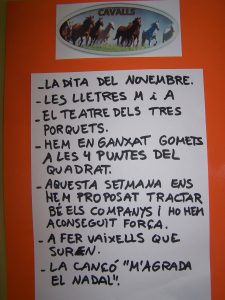 CAVALLS
- LA DITA DEL NOVEMBRE.
- LES LLETRES M i A
- EL TEATRE DELS TRES
PORQUETS.
- HEM ENGANXAT GOMETS
A LES 4 PUNTES DEL
QUADRAT.
- AQUESTA SETMANA ENS
HEM PROPOSAT TRACTAR
BÉ ELS COMPANYS I HO HEM
ACONSEGUIT FORÇA.
- A FER VAIXELLS QUE
SUREN.
- LA CANÇÓ "M'AGRADA
EL NADAL".